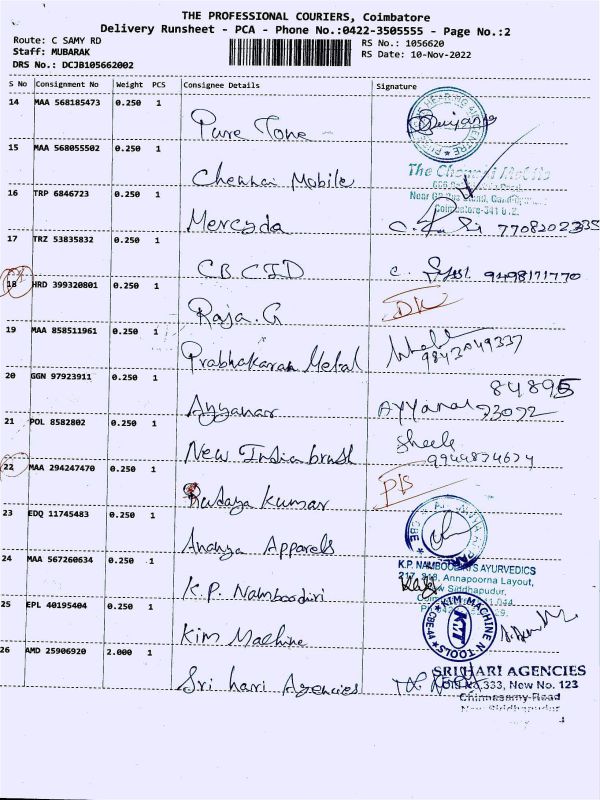 THE PROFESSIONAL COURIERS, Coimbatore
Delivery Runsheet - PCA - Phone No.:0422-3505555 - Page No.:2
Route: C SAMY RD
Staff: MUBARAK
DRS No.: DCJB105662002
RS No.: 1056620
RS Date: 10-Nov-2022
S No Consignment No Weight PCS Consignee Details Signature
14 MAA 568185473 0.250 1
Pure Tone
15 MAA 568055502 0.250 1
Chennai Mobile
The Chennai Mobile
16 TRP 6846723 0.250 1
Mercyda
7708202335
17 TRZ 53835832 0.250 1
C.B.C.I.D
9498171770
18 HRD 399320801 0.250 1
Raja.G
19 MAA 858511961 0.250 1
Prabhakaran Metal
9843049337
20 GGN 97923911 0.250 1
Ayyanar
84895
Ayyanar 73072
21 POL 8582802 0.250 1
New India brush
9944874674
22 MAA 294247470 0.250 1
Kudaya kumar
23 EDQ 11745483 0.250 1
Ananya Apparels
24 MAA 567260634 0.250 1
K.P. Namboodiri
K.P. NAMBOODIRI'S AYURVEDICS
Annapoorna Layout,
Siddhapudur,
25 EPL 40195404 0.250 1
Kim Machine
KIM MACHINE N TOOLS
CBE-44
26 AMD 25906920 2.000 1
Sri hari Agencies
SRI HARI AGENCIES
333, New No. 123
Chinnasamy Road
New Siddhapudur